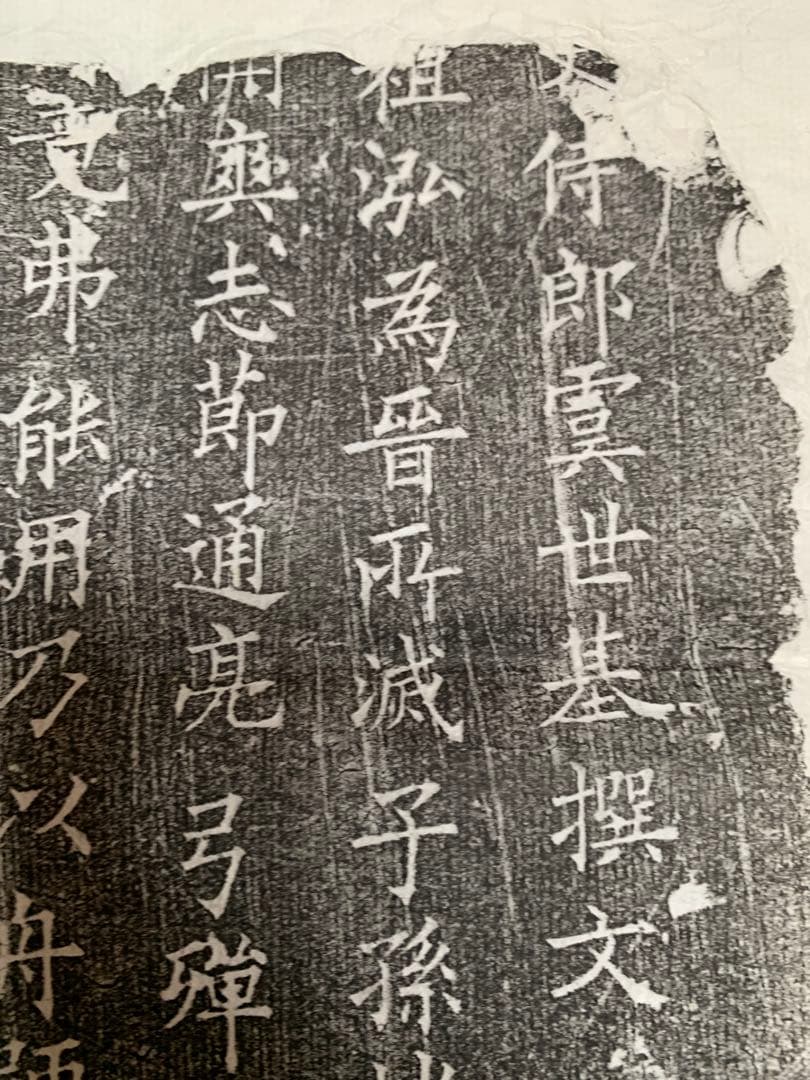 侍郎虞世基撰文
祖泓為晉所滅子孫
爽志節通亮弓彈
弗能用乃以舟師